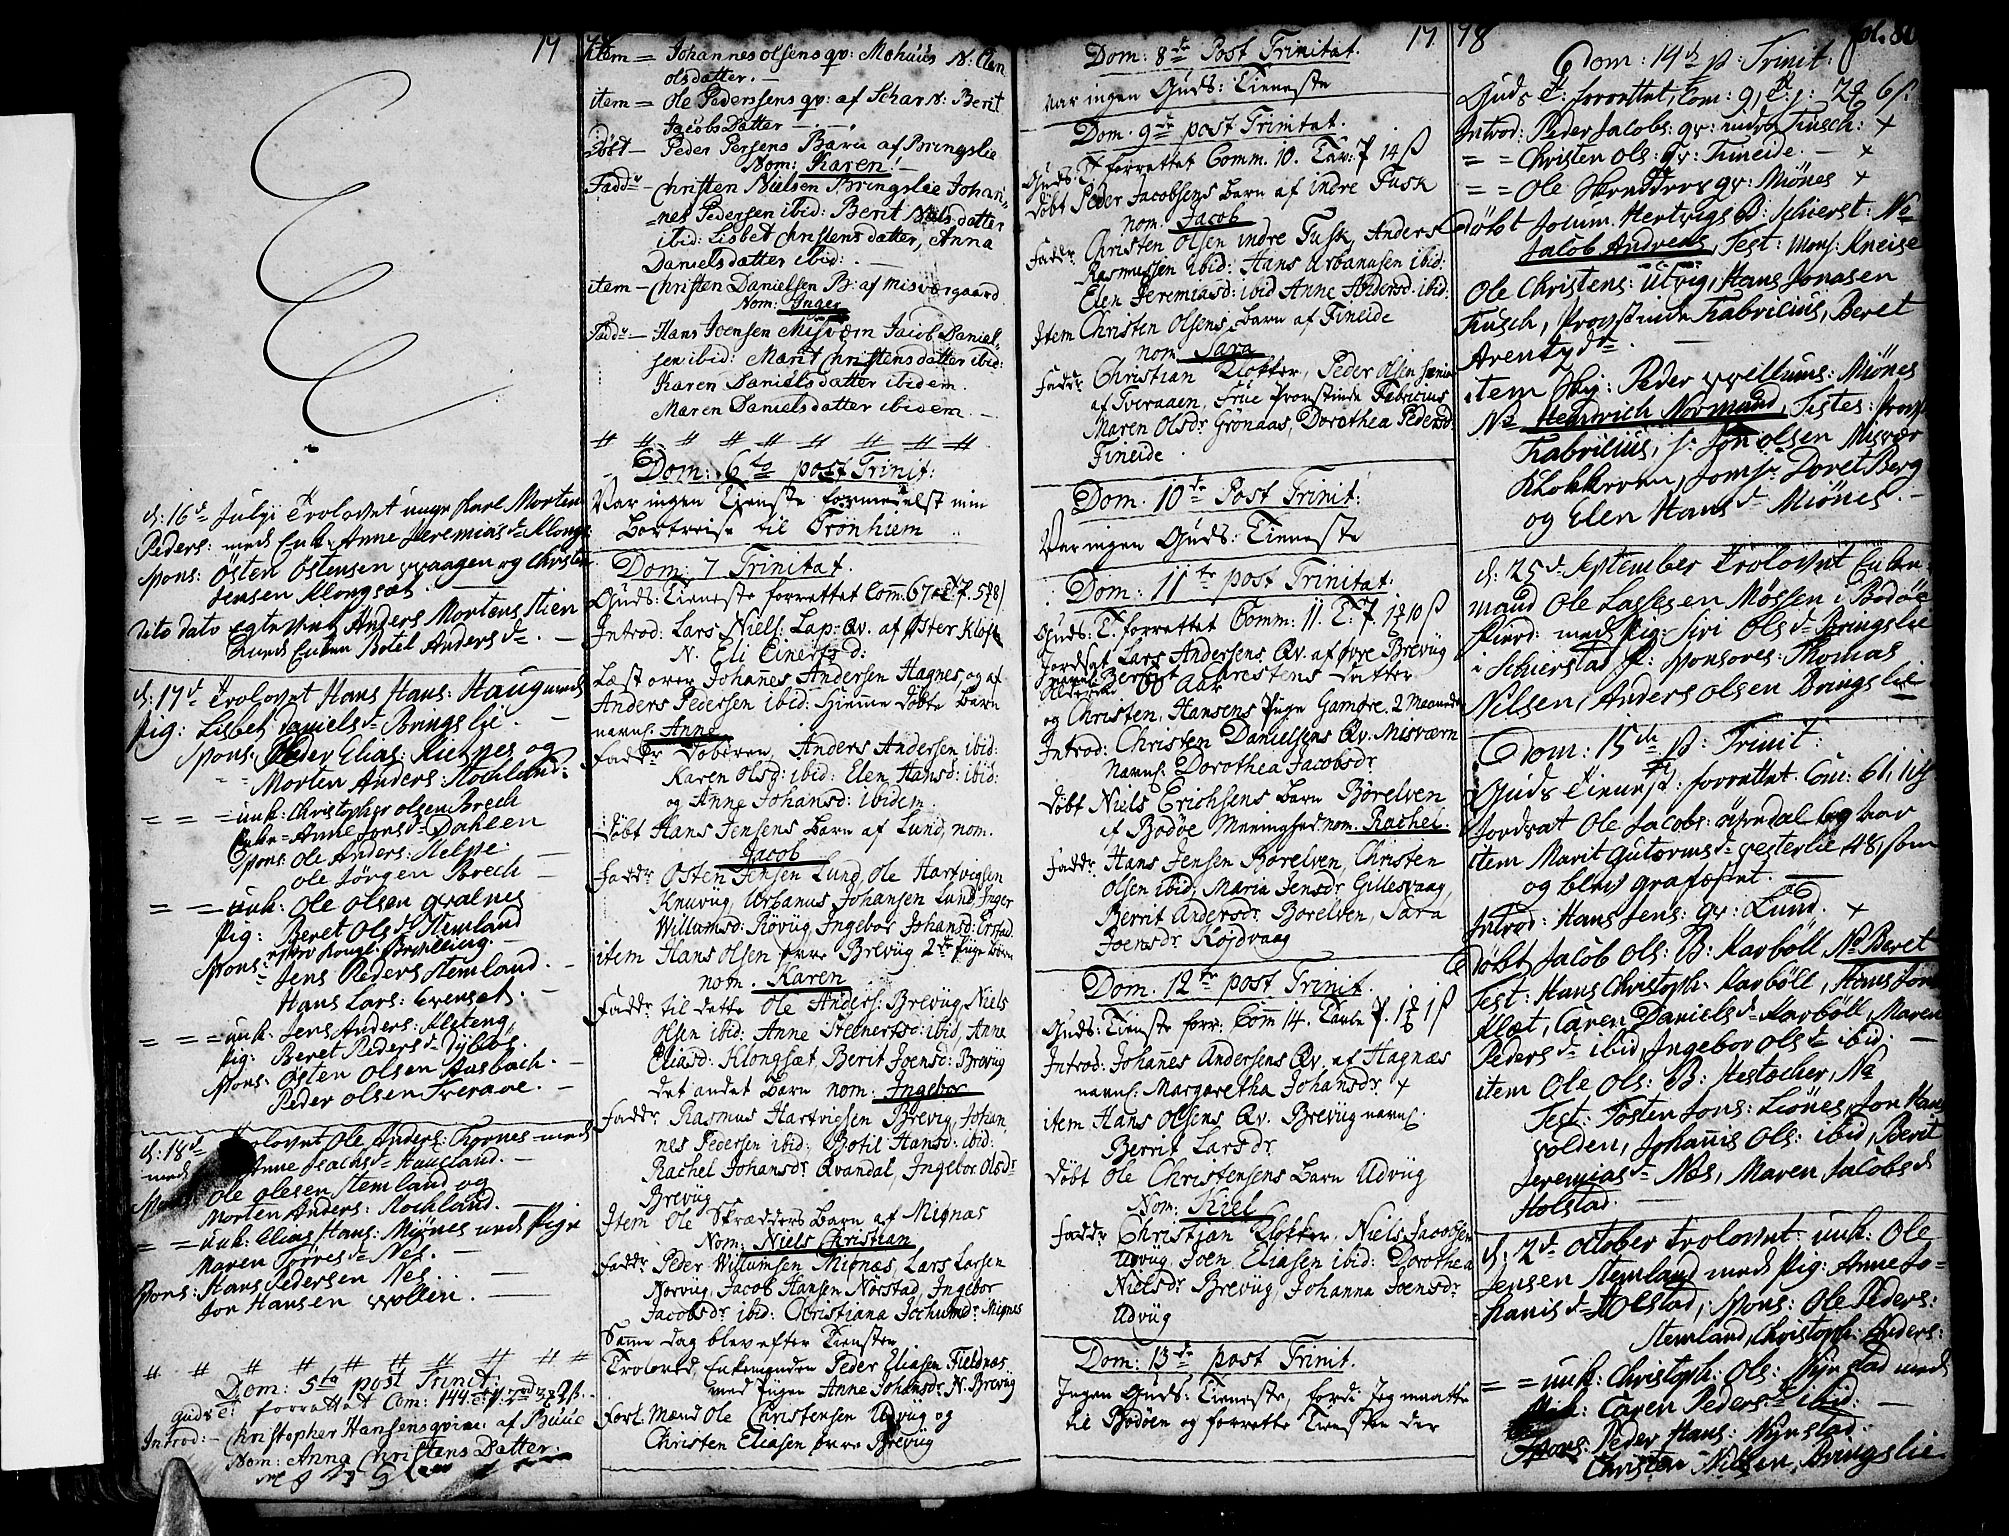 17
d: 16d Julji Trolovet unge Karl Morten
Peders: med Enke Anne Jeremiasd Klongs
spons: Östen Östensen vaagen og Christen
Jensen Klongsæt.
dito dato egteviet Anders Mortens Stien
med Enken Botel Andersd. —
d: 17d Trolovet Hans Hans: Haug med
Pig: Lisbet Danielsd Bringslie. —
spons: Peder Elias: og
Morten Anders: Kochland:
= = = unk: Christopher olsen Brech
Enke = Anne Jonsd Dahlen
Spons: Ole Anders:
Ole Jörgen Brech —
= = unk: Ole Olsen qvalnes
Pig: Beret Olsd Stemland
Spons:
Jens Peders Stemland. —
Hans Lars: Evenset. —
= = = unk: Jens Anders: Kleteng,
Pig: Beret Pedersd
spons: Östen Olsen Aasbach. —
Peder Olsen Tveraae. —
d: 18d Trolovet Ole Anders: med
med Anne Isachsd Hausland. —
Ole Olesen Stemland og
Morten Anders: Kochland. —
= = unk: Elias Hans: Miönes med Pige
Maren Torresd Nes. —
spons: Hans Pedersen Nes. —
Jon Hansen vollen. —
# # # # # # # # #
Dom: 5ta post Trinit:
guds t: forrettet Com: 144
Introd: — Christopher Hansens qvine: af
Nom: Anna Christens Datter.
item = Johannes olsens qv: Mohuus N: Elen
olsdatter. —
item = Ole Pederssens qv: af Schar N: Berit
Jacobs Datter —
Döbt — Peder Persens Barn af Bringslie
Nom: Karen! —
Faddr — Christen Nielsen Bringslie Johan
=nes Pedersen ibid: Berit Nielsdatter
ibid: Lisbet Christensdatter, Anna
Danielsdatter ibid: —
item — Christen Danielsen B: af misværgaard
Nom: Inger
Faddr — Hans Joensen Misværn Jacob Daniel-
sen ibid: Marit Christensdatter ibid:
Karen Danielsdatter ibidem.
Maren Danielsdatter ibidem. —
# # # # # # # # #
Dom: 6ta post Trinit:
Var ingen Tieneste formedelst min
Bortreise til Tronhiem
Dom: 7 Trinitat.
Guds: Tieneste forrettet Com: 67
Introd: Lars Niels: Lap: Qv. af Öster Kloft
N. Eli Einersd:
Læst over Johanes Andersen Hagnes, og af
Anders Pedersen ibid: Hiemme döbte Barn
navnl. Anne
Faddr Andersen ibid:
Karen Olsd: ibid: Elen Hansd: ibid:
og Anne Johansd: ibidem.
Döbt Hans Jensens Barn af Lund, nom.
Jacob
Faddr Östen Jensen Lund, Ole Hartvigsen
Knuvüg, Urbanus Johansen Lund, Inger
Willumsd: Rövüg, Ingebor Johansd:
item Hans Olsen övre Brevüg 2de Pige Börn
nom. Karen
Faddr til dette Ole Anders: Brevüg, Niels
Olsen ibid: Anne Steenertsd: ibid, Anne
Eliasd: Klongsæt, Berit Joensd: Brevüg
Det andet Barn nom: Ingebor
Faddr Rasmus Hartvigsen Brevig, Johan
nes Pedersen ibid: Botil Hansd: ibid:
Rachel Johansdr Qvandal, Ingebor Olsdr
Brevüg
Item Ole Skrædders Barn af Miönæs
Nom: Niels Christian
Faddr Peder Willumsen Miönæs, Lars Larsen
Norvüg, Jacob Hansen Nörstad, Ingebor
Jacobsdr ibid: Christiana Jochumdr Miönes
Same dag blev efter Tiensten
Troloved Enkemanden Peder Eliasen Fieldnæs
med Pigen Anne Johansdr N. Brevüg
Forl. Mænd Ole Christensen Udvüg og
Christen Eliasen övre Brevüg
Dom: 8de Post Trinitat.
var ingen Guds: Tieneste
Dom. 9de post Trinitat.
Guds: T. forrettet Comm. 10. Tav: P 14 ß
Döbt Peder Jacobsens barn af indre Fusk
nom: Jacob
Faddr Christen Olsen indre Fusk, Anders
Rasmussen ibid: Hans Urbanusen ibid:
Elen Jeremiasd: ibid Anne Andersd: ibid:
Item Christen Olsens Barn af Fineide
nom. Sara
Faddr Christian Klokker, Peder Olsen
af Tveraaen, Frue Provstinde Fabricius
Maren Olsdr Grönaas, Dorothea Pedersd
Fineide.
Dom: 10de Post Trinit:
Var ingen Guds: Tieneste
Dom: 11te post Trinitat:
Guds: T. forrettet Comm: 11. T: P 10 ß
Jordsat Lars Andersens Qv. af övre Brevüg
navnl Berret Christens datter
Alder 60 Aar
og Christen Hansens Pige Gamöre. 2 Maaneder
Introd: Christen Danielsens Qv. Misværn
Navnl. Dorothea Jacobsdr
Döbt Niels Erichsens Barn Börelven
af Bodöe Meenighed, nom. Rachel.
Faddr Hans Jensen Börelven, Christen
Olsen ibid; Maria Jensdr Gillesvaag,
Berrit Andersdr Borelven, Sara
Joensdr Kojdvaag
Dom: 12te post Trinit.
Guds: Tieneste forr. Com 14. Tavle P. 1 ß
Introd: Johannes Andersens Qv. af Hagnæs
navnl. Margaretha Johansdr +
item Hans Olsens Qv. Brevüg navnl.
Berrit Larsdr
Döbt Ole Christensens Barn Udvüg
Nom: Kiel
Faddr Christian Klokker, Niels Jacobsen
Udvüg, Joen Eliasen ibid: Dorothea
Nielsdr Brevüg, Johanna Joensdr
Udvüg
Dom: 13de post Trinit.
Ingen Guds: Tieneste, fordi Jeg maatte
til Bodöen og forrette Tiensten der
17 98
fol. 80
Dom: 14d p: Trinit:
Guds t: forrettet, Com: 9,
Introd: Peder Jacobs: qv: indre Fusch: +
= = Christen Ols: qv: Fineide. — +
= = Ole Skredders qv: Miönes +
döbt Jocum Hertvigs B: Schierst: No
Jacob Andreas, Test: Mons: Kneise
Ole Christens: utvig, Hans Jonasen
Fusch, Provstinde Fabricius, Beret
Arentzdr. —
item Skij: Peder vellums: Miönes
No Hendrich Normand, Testes: Provst
Fabricius, Sr Jon Olsen Misvær
Klokkeren, Jomfr Doret Berg
og Elen Hansd Miönes. —
d: 25d September Trolovet Enke
mand Ole Lassesen Mössen i Bodöe
Fierd: med Pig: Siri Olsd Bringslie
i Schierstad F: sponsores: Thomas
Nilsen, Anders Olsen Bringslie
Dom: 15de p: Trinit:
Guds Tienest: forrettet Com: 61,
Jordsat Ole Jacobs:
item Marit Gutormsd vesterlie, 48, som
og blev grafæstet. —
Introd: Hans Jens: qv: Lund. +
Döbt Jacob Ols: B: Karböll No Beret
Test: Hans Christoph: Karböll, Hans Jon
Klæt, Caren Danielsd Karböll, Maren
Pedersd ibid, Ingebor Olsd ibid: —
item Ole Ols: B: No
Test: Tosten Jons: Liönes, Jon Hans
volden, Johannis Ols: ibid, Berit
Jeremiasd Nes, Maren Jacobsd
Holstad. —
d: 2d October Trolovet: unk: Ole
Jensen Stemland med Pig: Anne Jo=
hanisd Holstad, spons: Ole Peders:
Stemland, Christoph: Anders:
= = unk: Christoph: Ols: Nynstad med
Caren Pedersd ibid: —
Spons: Peder Hans: Nynstad:
Christen Nilsen, Bringslie